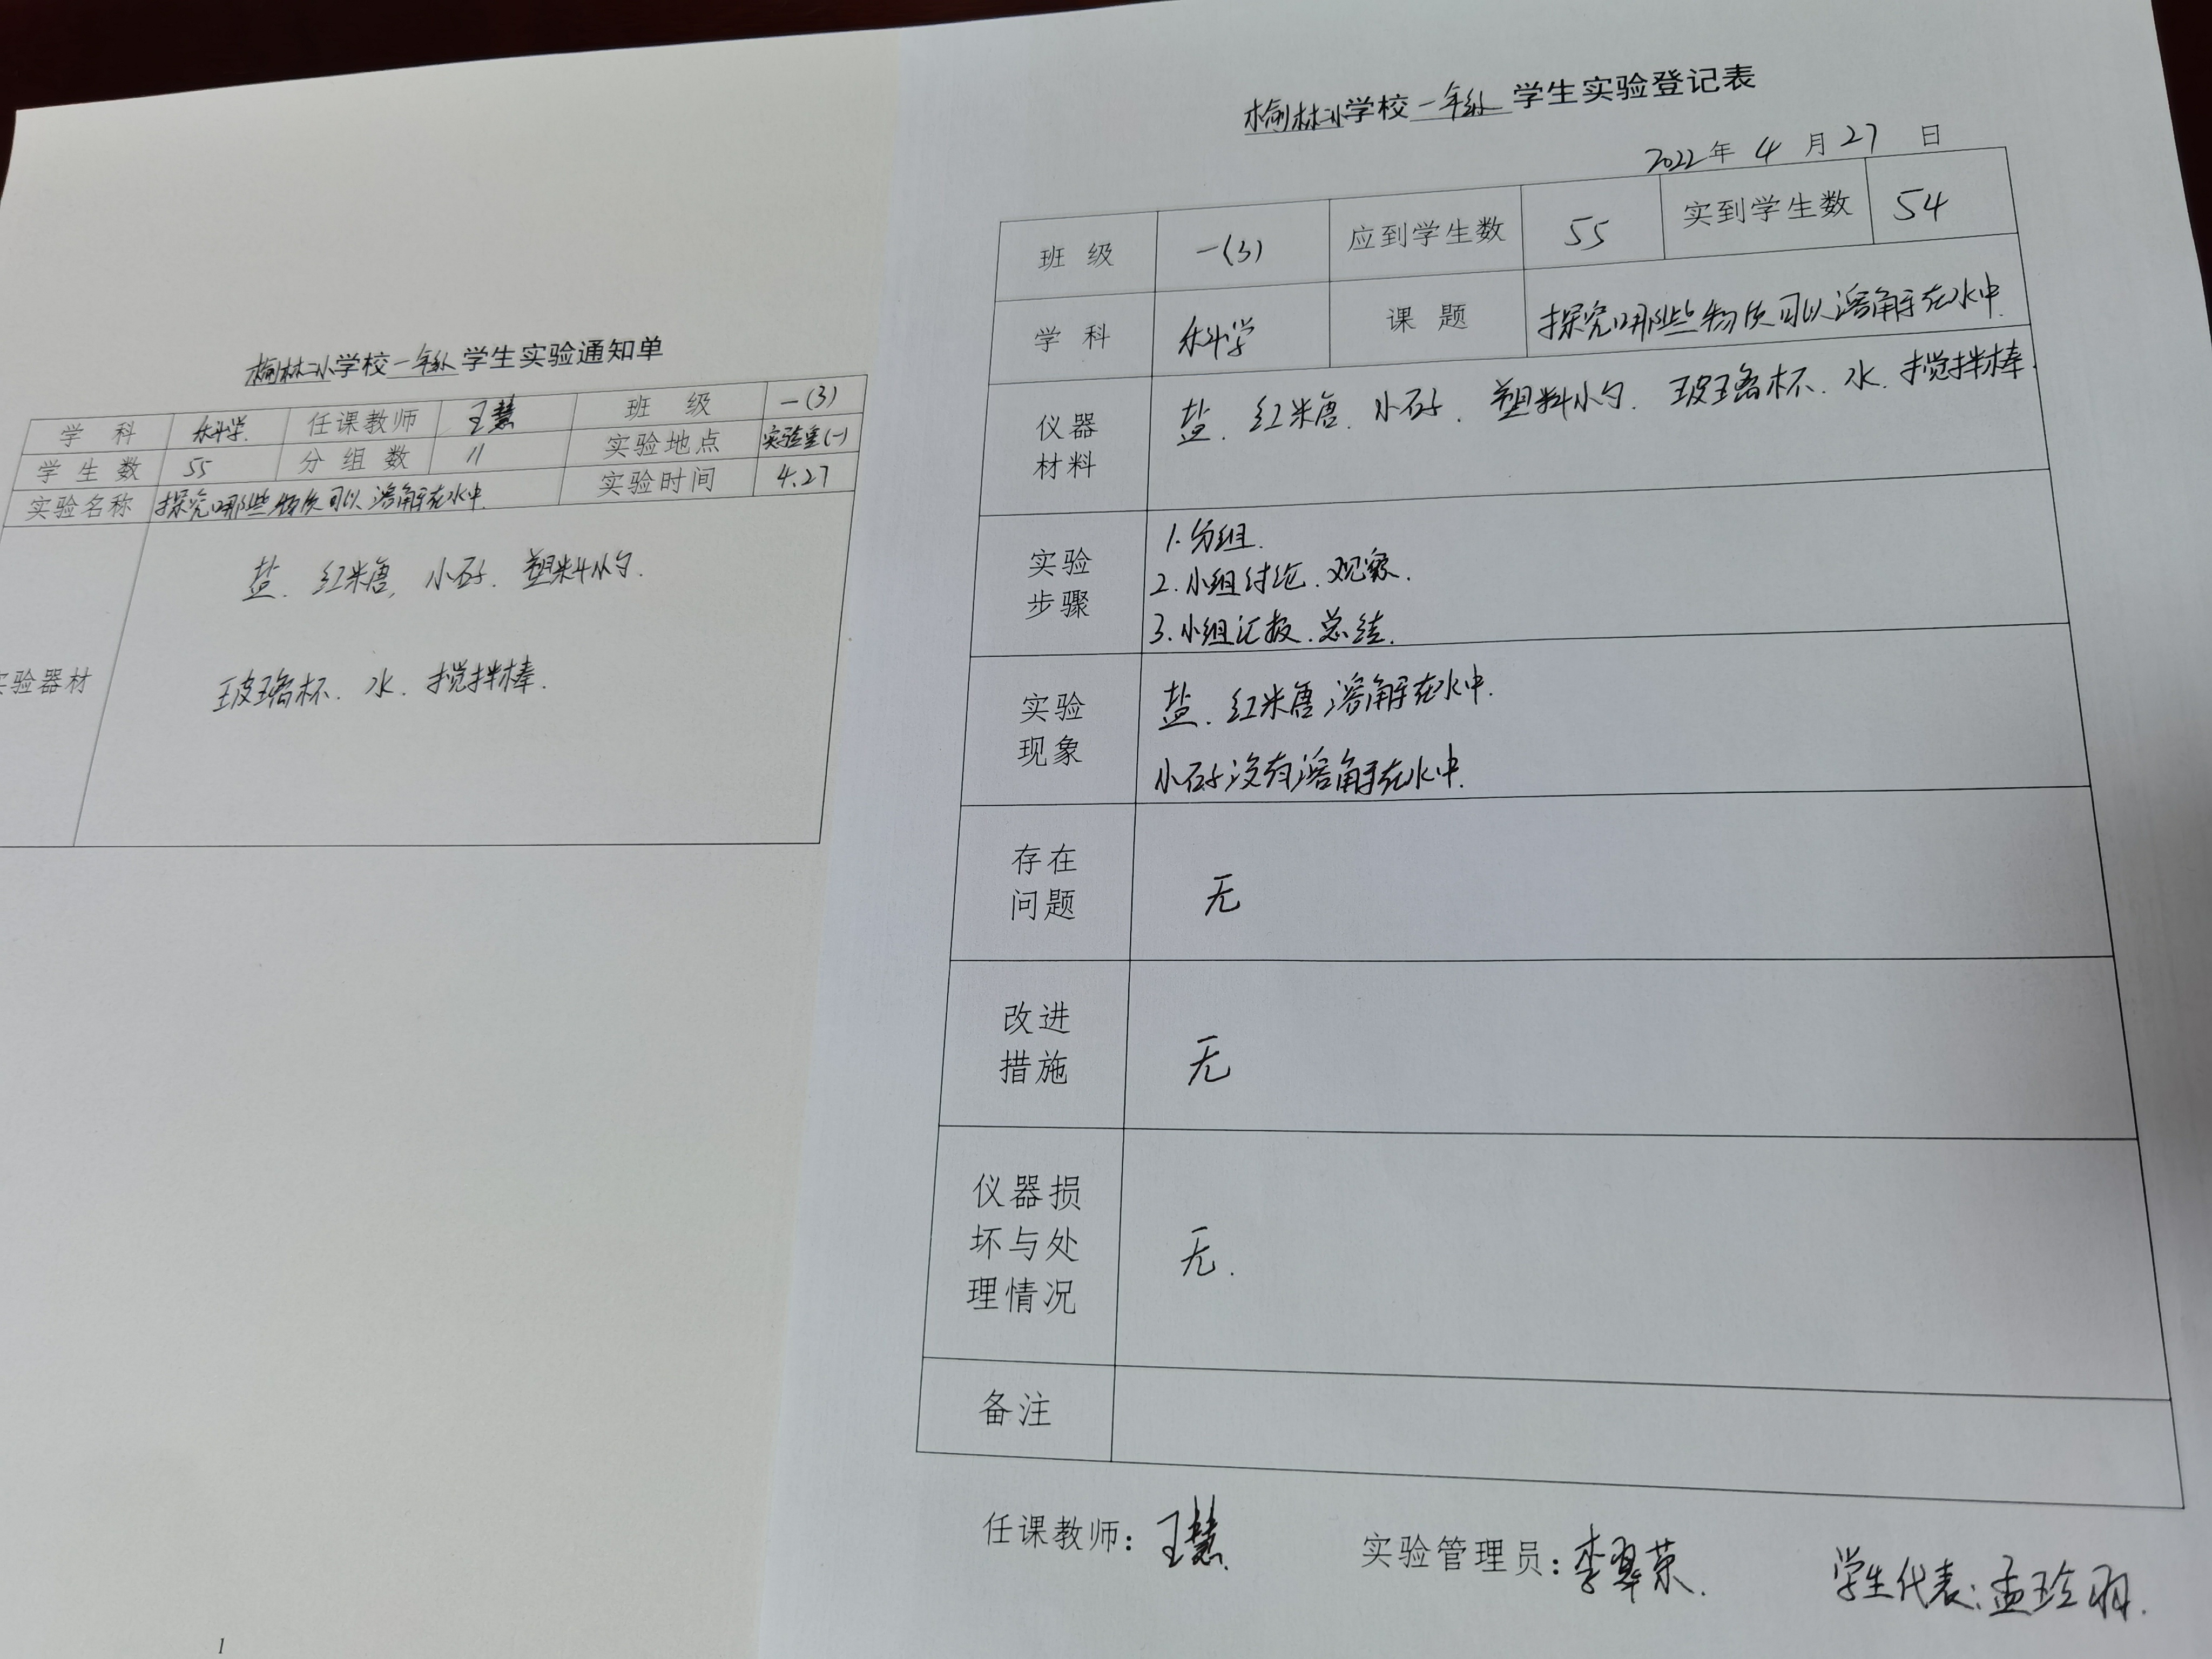 榆林二小学校一年级学生实验通知单
学 科 科学 任课教师 王慧 班 级 一(3)
学 生 数 55 分 组 数 11 实验地点 实验室(一)
实验名称 探究哪些物质可以溶解在水中 实验时间 4.27
实验器材
盐、红糖、小石子、塑料小勺、
玻璃杯、水、搅拌棒.
1
榆林二小学校一年级学生实验登记表
2022年 4 月 27 日
班 级 一(3) 应到学生数 55 实到学生数 54
学 科 科学 课 题 探究哪些物质可以溶解在水中
仪器
材料
盐、红糖、小石子、塑料小勺、玻璃杯、水、搅拌棒.
实验
步骤
1.分组.
2.小组讨论、观察.
3.小组汇报、总结.
实验
现象
盐、红糖溶解在水中.
小石子没有溶解在水中.
存在
问题
无
改进
措施
无
仪器损
坏与处
理情况
无.
备注
任课教师：王慧 实验管理员：李翠荣. 学生代表：孟玲羽.